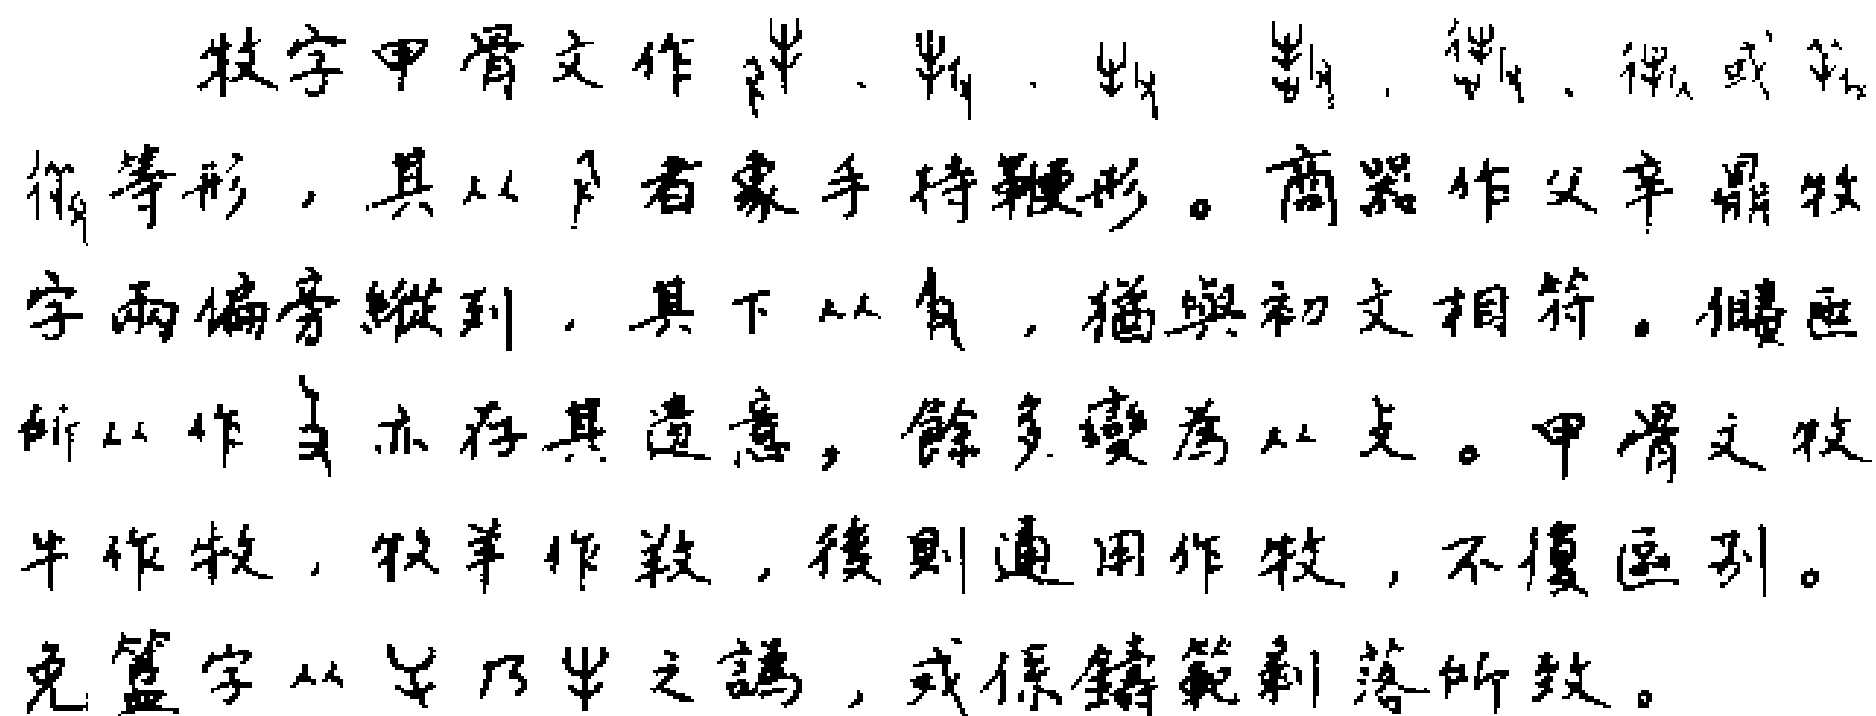 牧字甲骨文作、、、、或
等形,其从者象手持鞭形。商器作父辛鼎牧
字兩偏旁縱列,其下从,猶與初文相符。儥匜
所从作亦存其遺意,餘多變為从攴。甲骨文牧
牛作牧,牧羊作䍩,後則通用作牧,不復區別。
免簠字从乃之譌,或係鑄範剝落所致。